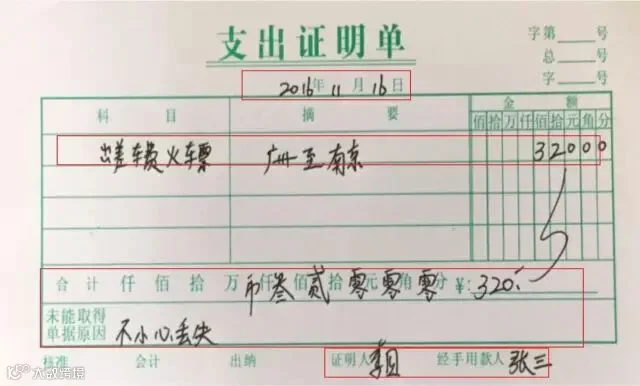 支出证明单
字第____号
总____号
字____号
2016年 11月 16日
科 目 摘 要 金 额
佰拾万仟佰拾元角分
出差车费火车票 广州至南京 32000
合计 仟佰拾万仟佰拾元角分 币叁贰零零零 ¥:320.-
未能取得单据原因 不小心丢失
核准 会计 出纳 证明人 李 经手用款人 张三
大数跨境